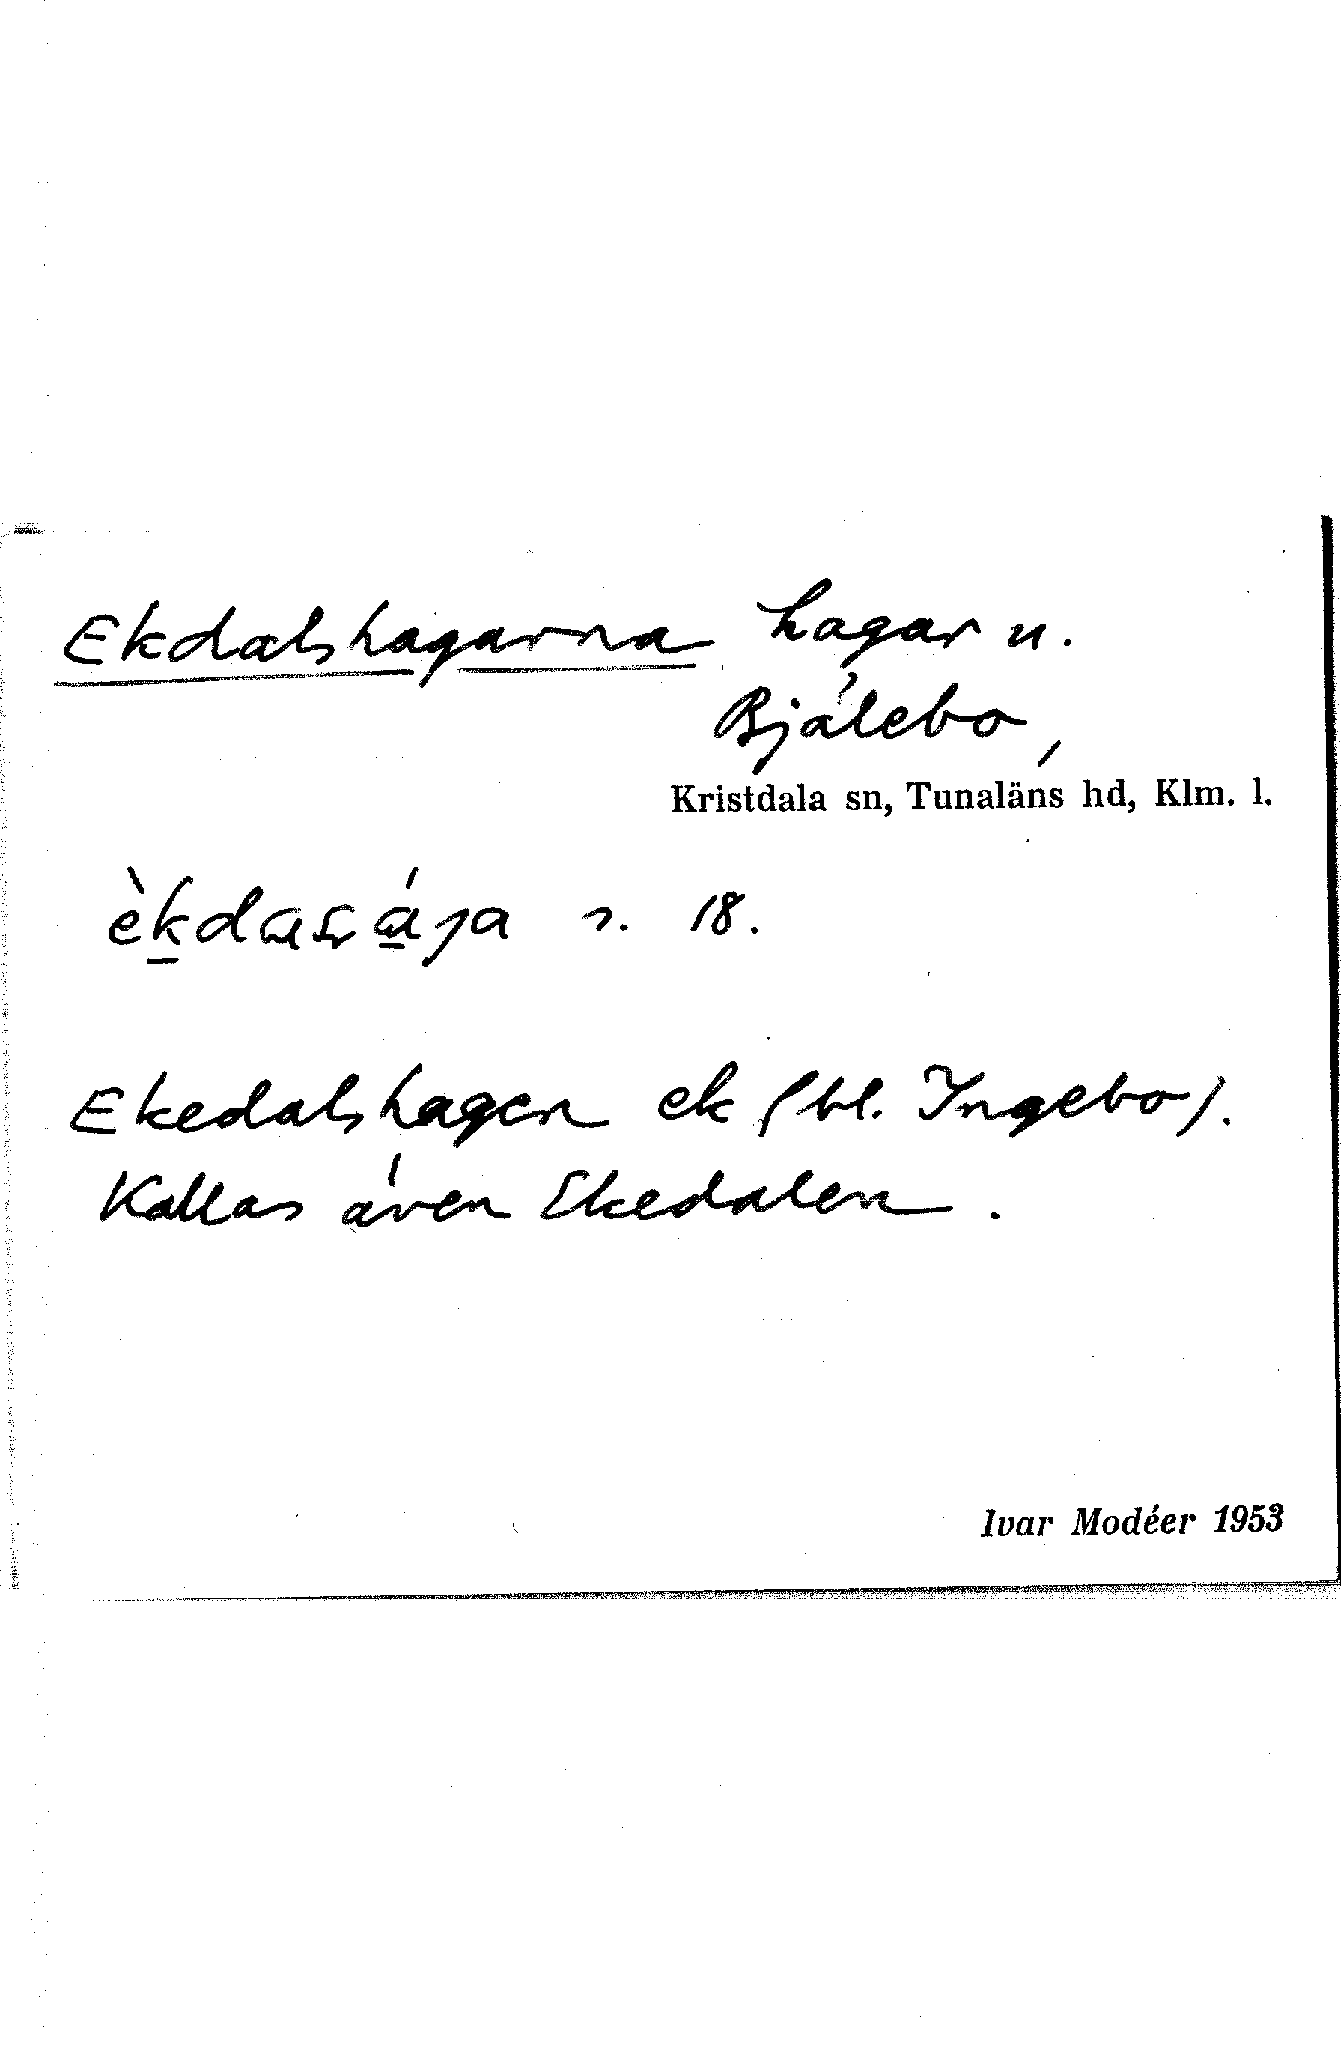 Ekdalshagarna hagar u.
Bjälebo,
Kristdala sn, Tunaläns hd, Klm. l.
s. 18.
Ekedalshagen ek (bl. Ingebo).
Kallas även Ekedalen.
Ivar Modéer 1953